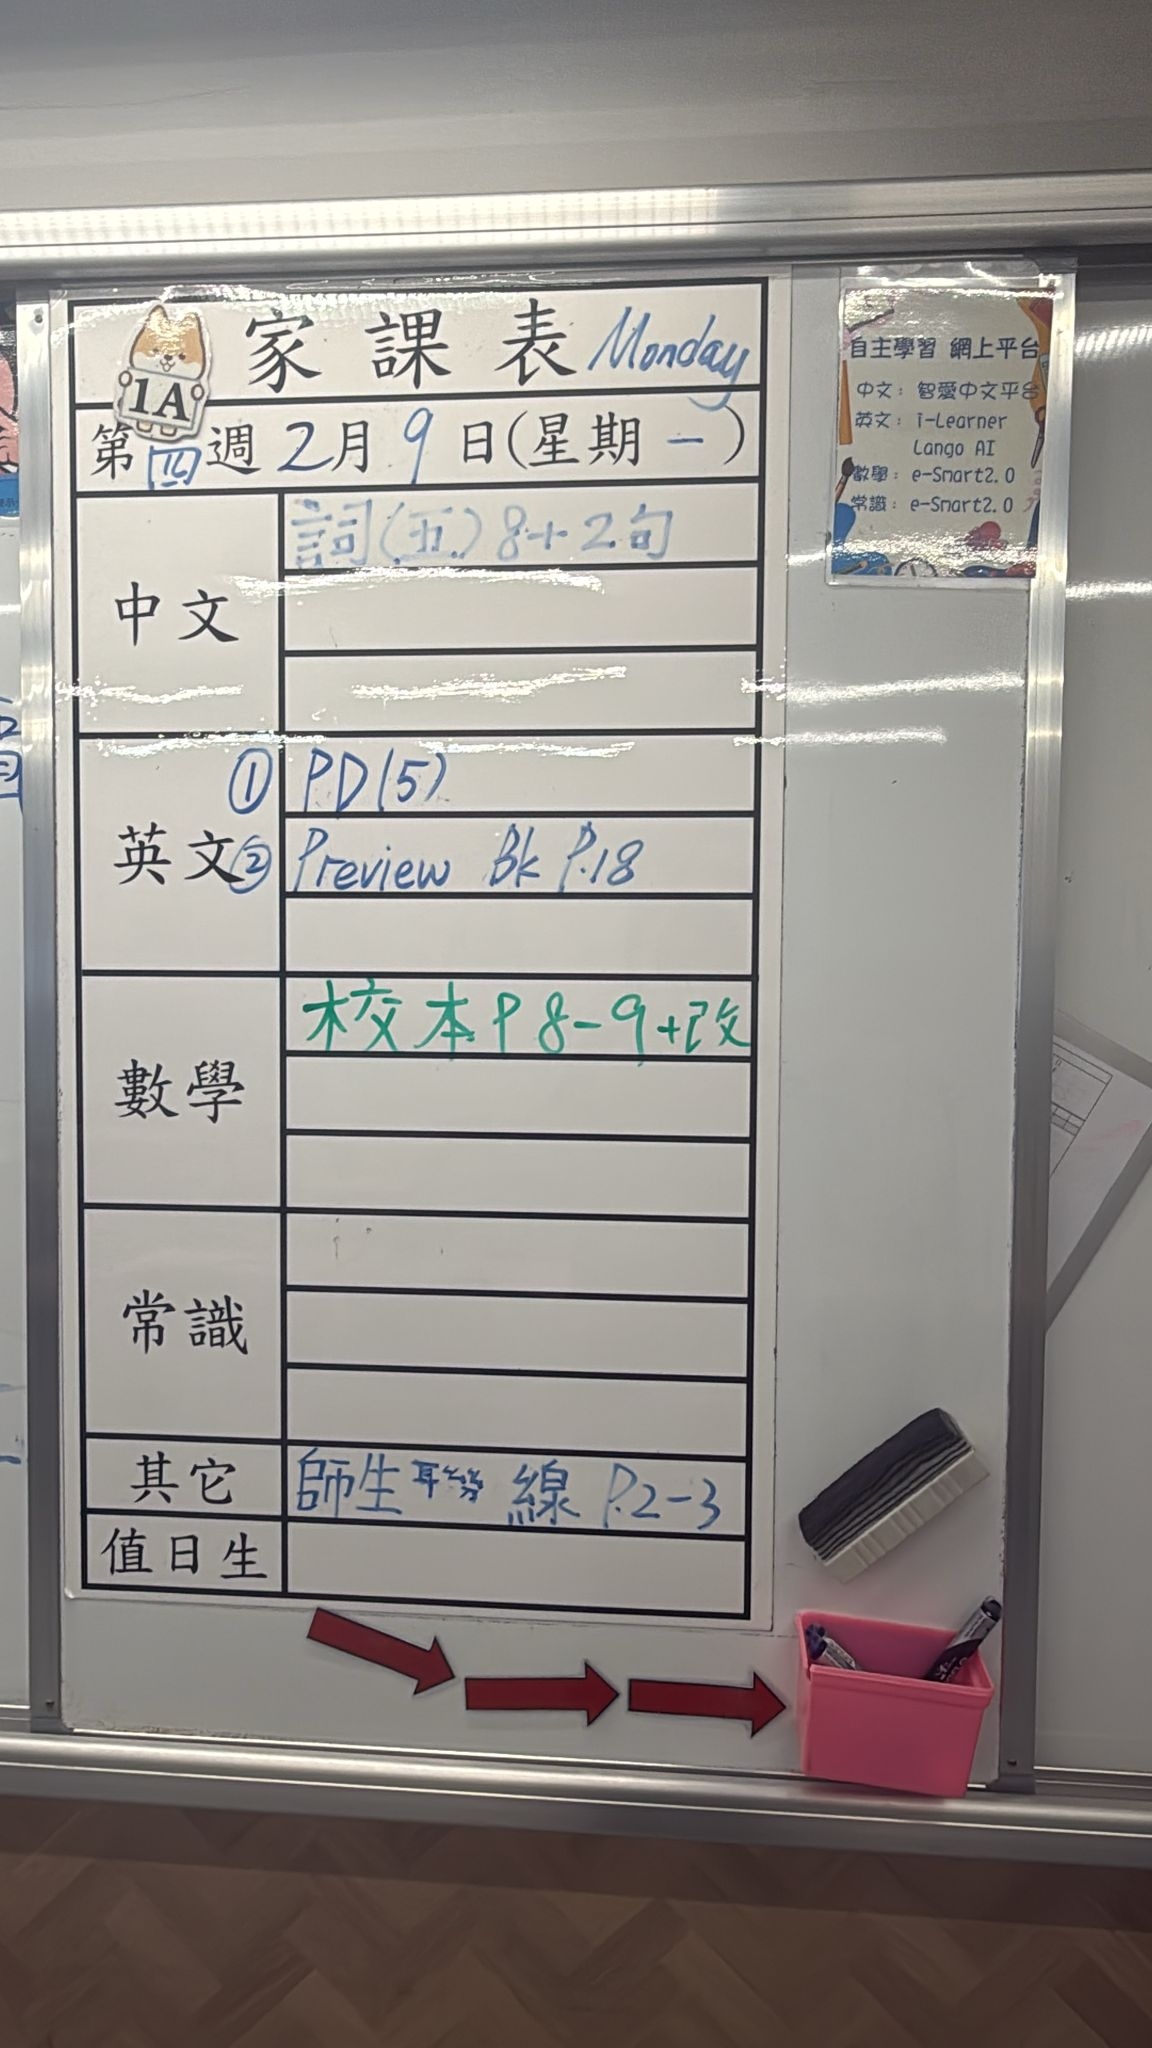 家課表 Monday
1A
第四週 2月9日(星期一)
中文
詞(五)8+2句
英文
① PD(5)
② Preview Bk P.18
數學
校本P8-9+改
常識
其它
師生聯線 P.2-3
值日生
自主學習 網上平台
中文：智愛中文平台
英文：i-Learner
Lango AI
數學：e-Smart2.0
常識：e-Smart2.0